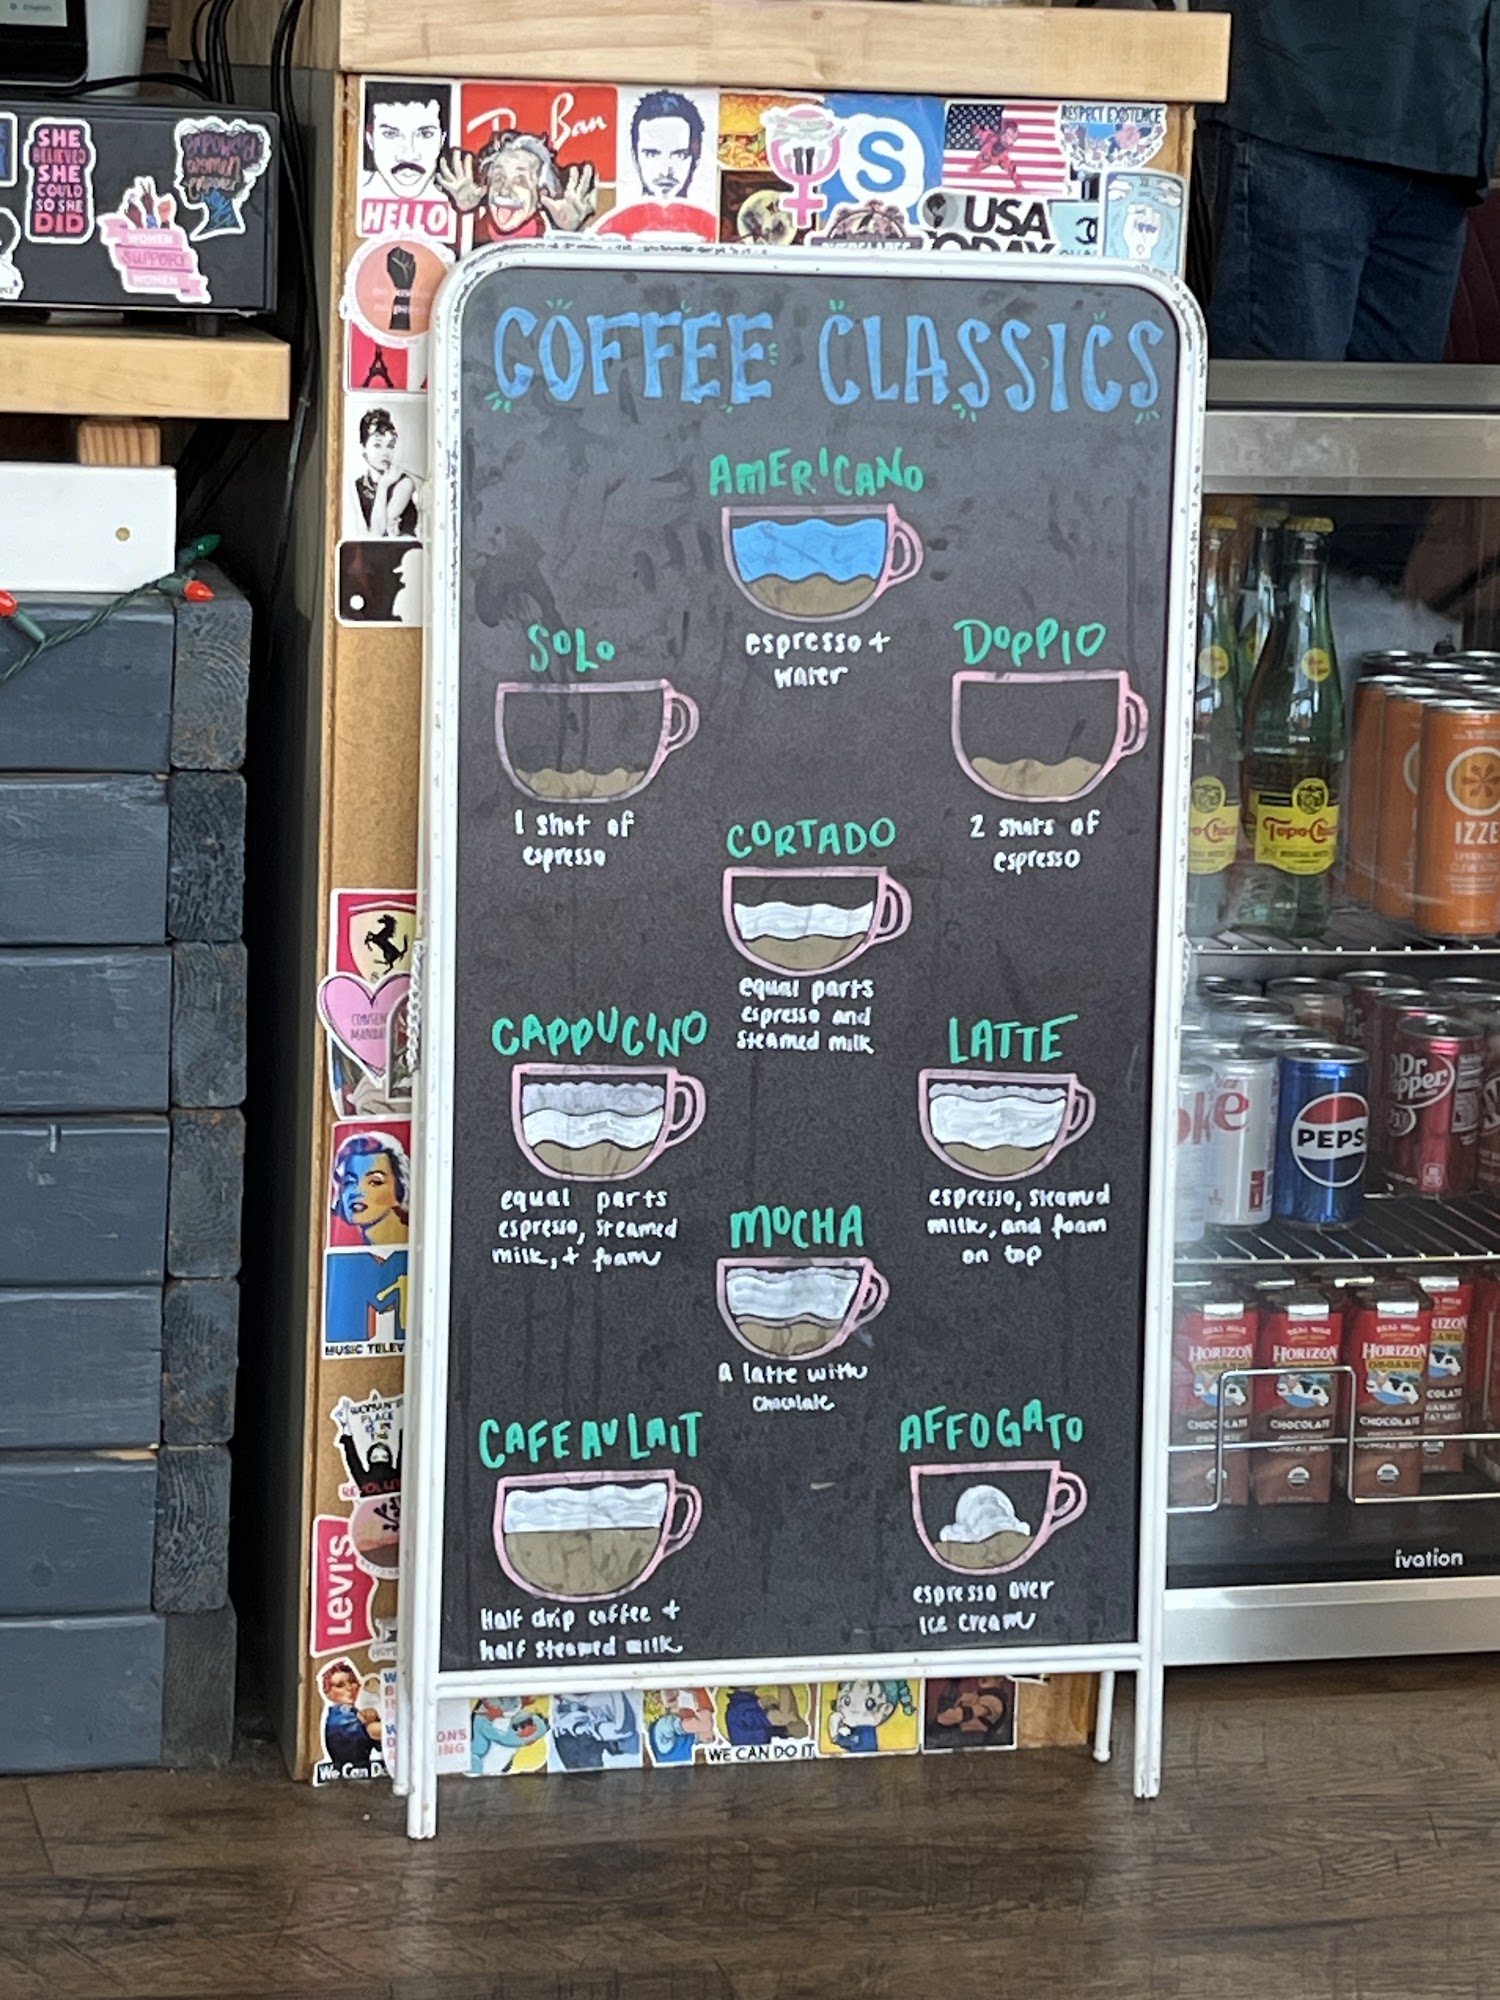 English
SHE
BELIEVED
SHE
COULD
SO SHE
DID
empowered
women
WOMEN
SUPPORT
WOMEN
HELLO
Ray Ban
S
RESPECT EXISTENCE
USA
TODAY
EVERGLADES
COFFEE CLASSICS
AMERICANO
espresso +
water
SOLO
1 shot of
espresso
DOPPIO
2 shots of
espresso
CORTADO
equal parts
espresso and
steamed milk
CAPPUCINO
equal parts
espresso, steamed
milk, + foam
LATTE
espresso, steamed
milk, and foam
on top
MOCHA
a latte with
chocolate
CAFE AU LAIT
Half drip coffee +
half steamed milk
AFFOGATO
espresso over
ice cream
MUSIC TELEV
A
WOMAN'S
PLACE
IS IN
THE
Levi's
We Can Do
ONS
ING
WE CAN DO IT
Topo Chico
IZZE
oke
PEPSI
Dr
pepper
HORIZON
ORGANIC
CHOCOLATE
HORIZON
ORGANIC
CHOCOLATE
HORIZON
ORGANIC
CHOCOLATE
ivation